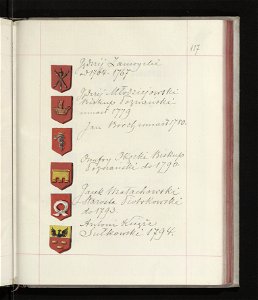 117
Jędrzej Zamoyski
od 1764-1767
Jędrzej Młodziejowski
Biskup Poznański
umarł 1779
Jan Borch umarł 1780.
Onufry Okęcki Biskup
Poznański do 1793
Jacek Małachowski
Starosta Piotrkowski
do 1793.
Antoni Książe
Sułkowski 1794.